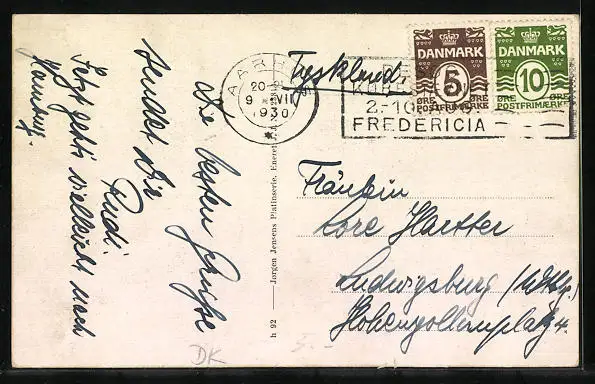 Die besten Grüße
sendet Dir
Rudi.
Jetzt geht's vielleicht nach
Hamburg.
h 92 — Jørgen Jensens Platinserie. Eneret
AARHUS
20-
9 VII
1930
Tyskland.
2-10
FREDERICIA
DANMARK
5
ØRE ØRE
POSTFRIMÆRKE
DANMARK
10
ØRE ØRE
POSTFRIMÆRKE
Fräulein
Lore Hartter
Ludwigsburg (Wttbg.)
Hohenzollernplatz 4.
DK